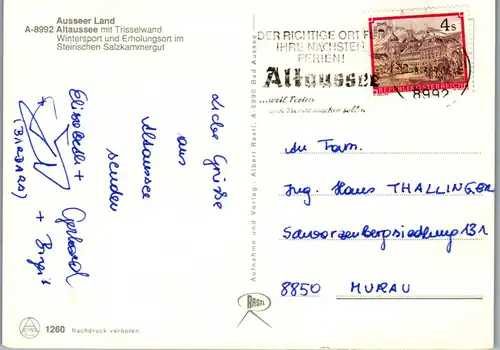 Ausseer Land
A-8992 Altaussee mit Trisselwand
Wintersport und Erholungsort im
Steirischen Salzkammergut
DER RICHTIGE ORT FÜR
IHRE NÄCHSTEN
FERIEN!
Altaussee
...weil Ferien
8992
4 s
REPUBLIK ÖSTERREICH
Liebe Grüße
aus
Altaussee
senden
Elisabeth +
Gerhard
(BARBARA)
+ Birgit
Aufnahme und Verlag: Albert Rastl, A-8990 Bad Aussee
An Fam.
Ing. Hans THALLINGER
Schwarzenbergsiedlung 131
8850 MURAU
RASTL
1260 Nachdruck verboten.